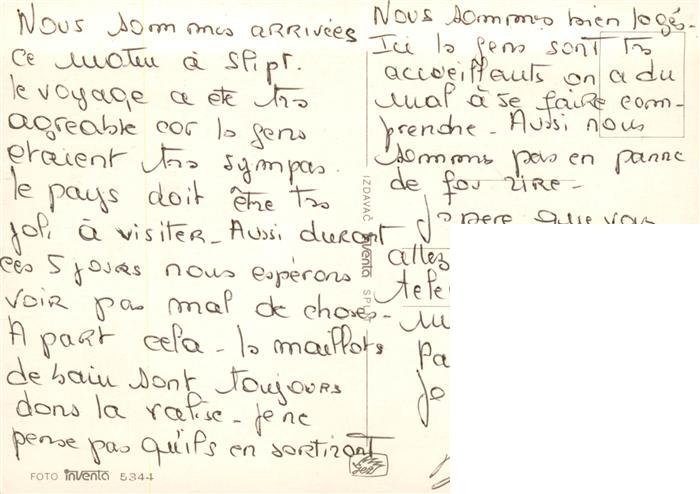 Nous sommes arrivées
ce matin à Split.
le voyage a été très
agreable car les gens
etaient très sympas.
le pays doit être très
joli à visiter - Aussi durant
ces 5 jours nous espérons
voir pas mal de choses -
A part cela - les maillots
de bain sont toujours
dans la valise - je ne
pense pas qu'ils en sortiront
FOTO inventa 5344
IZDAVAČ inventa SPLIT
Nous sommes bien logés -
Ici les gens sont très
accueillants on a du
mal à se faire com-
prendre - Aussi nous
sommes pas en panne
de fou rire -
J'espère que vous
allez